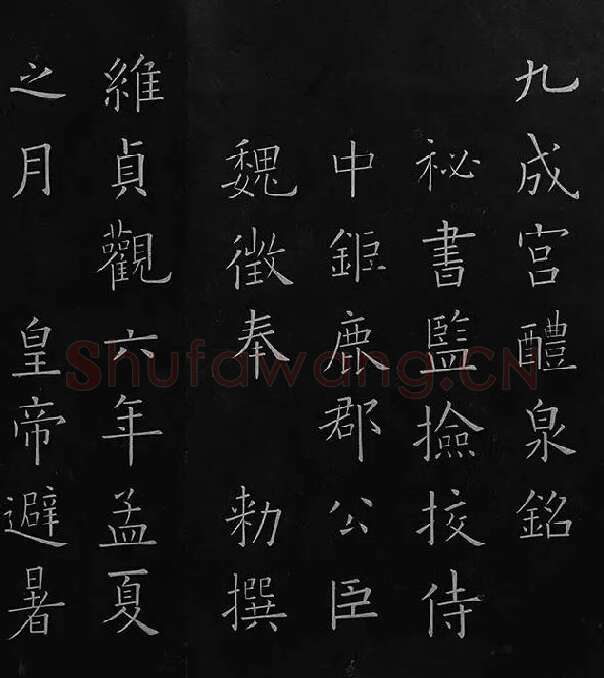 九成宮醴泉銘
祕書監撿挍侍
中鉅鹿郡公臣
魏徵奉 勑撰
維貞觀六年孟夏
之月 皇帝避暑
Shufawang.CN